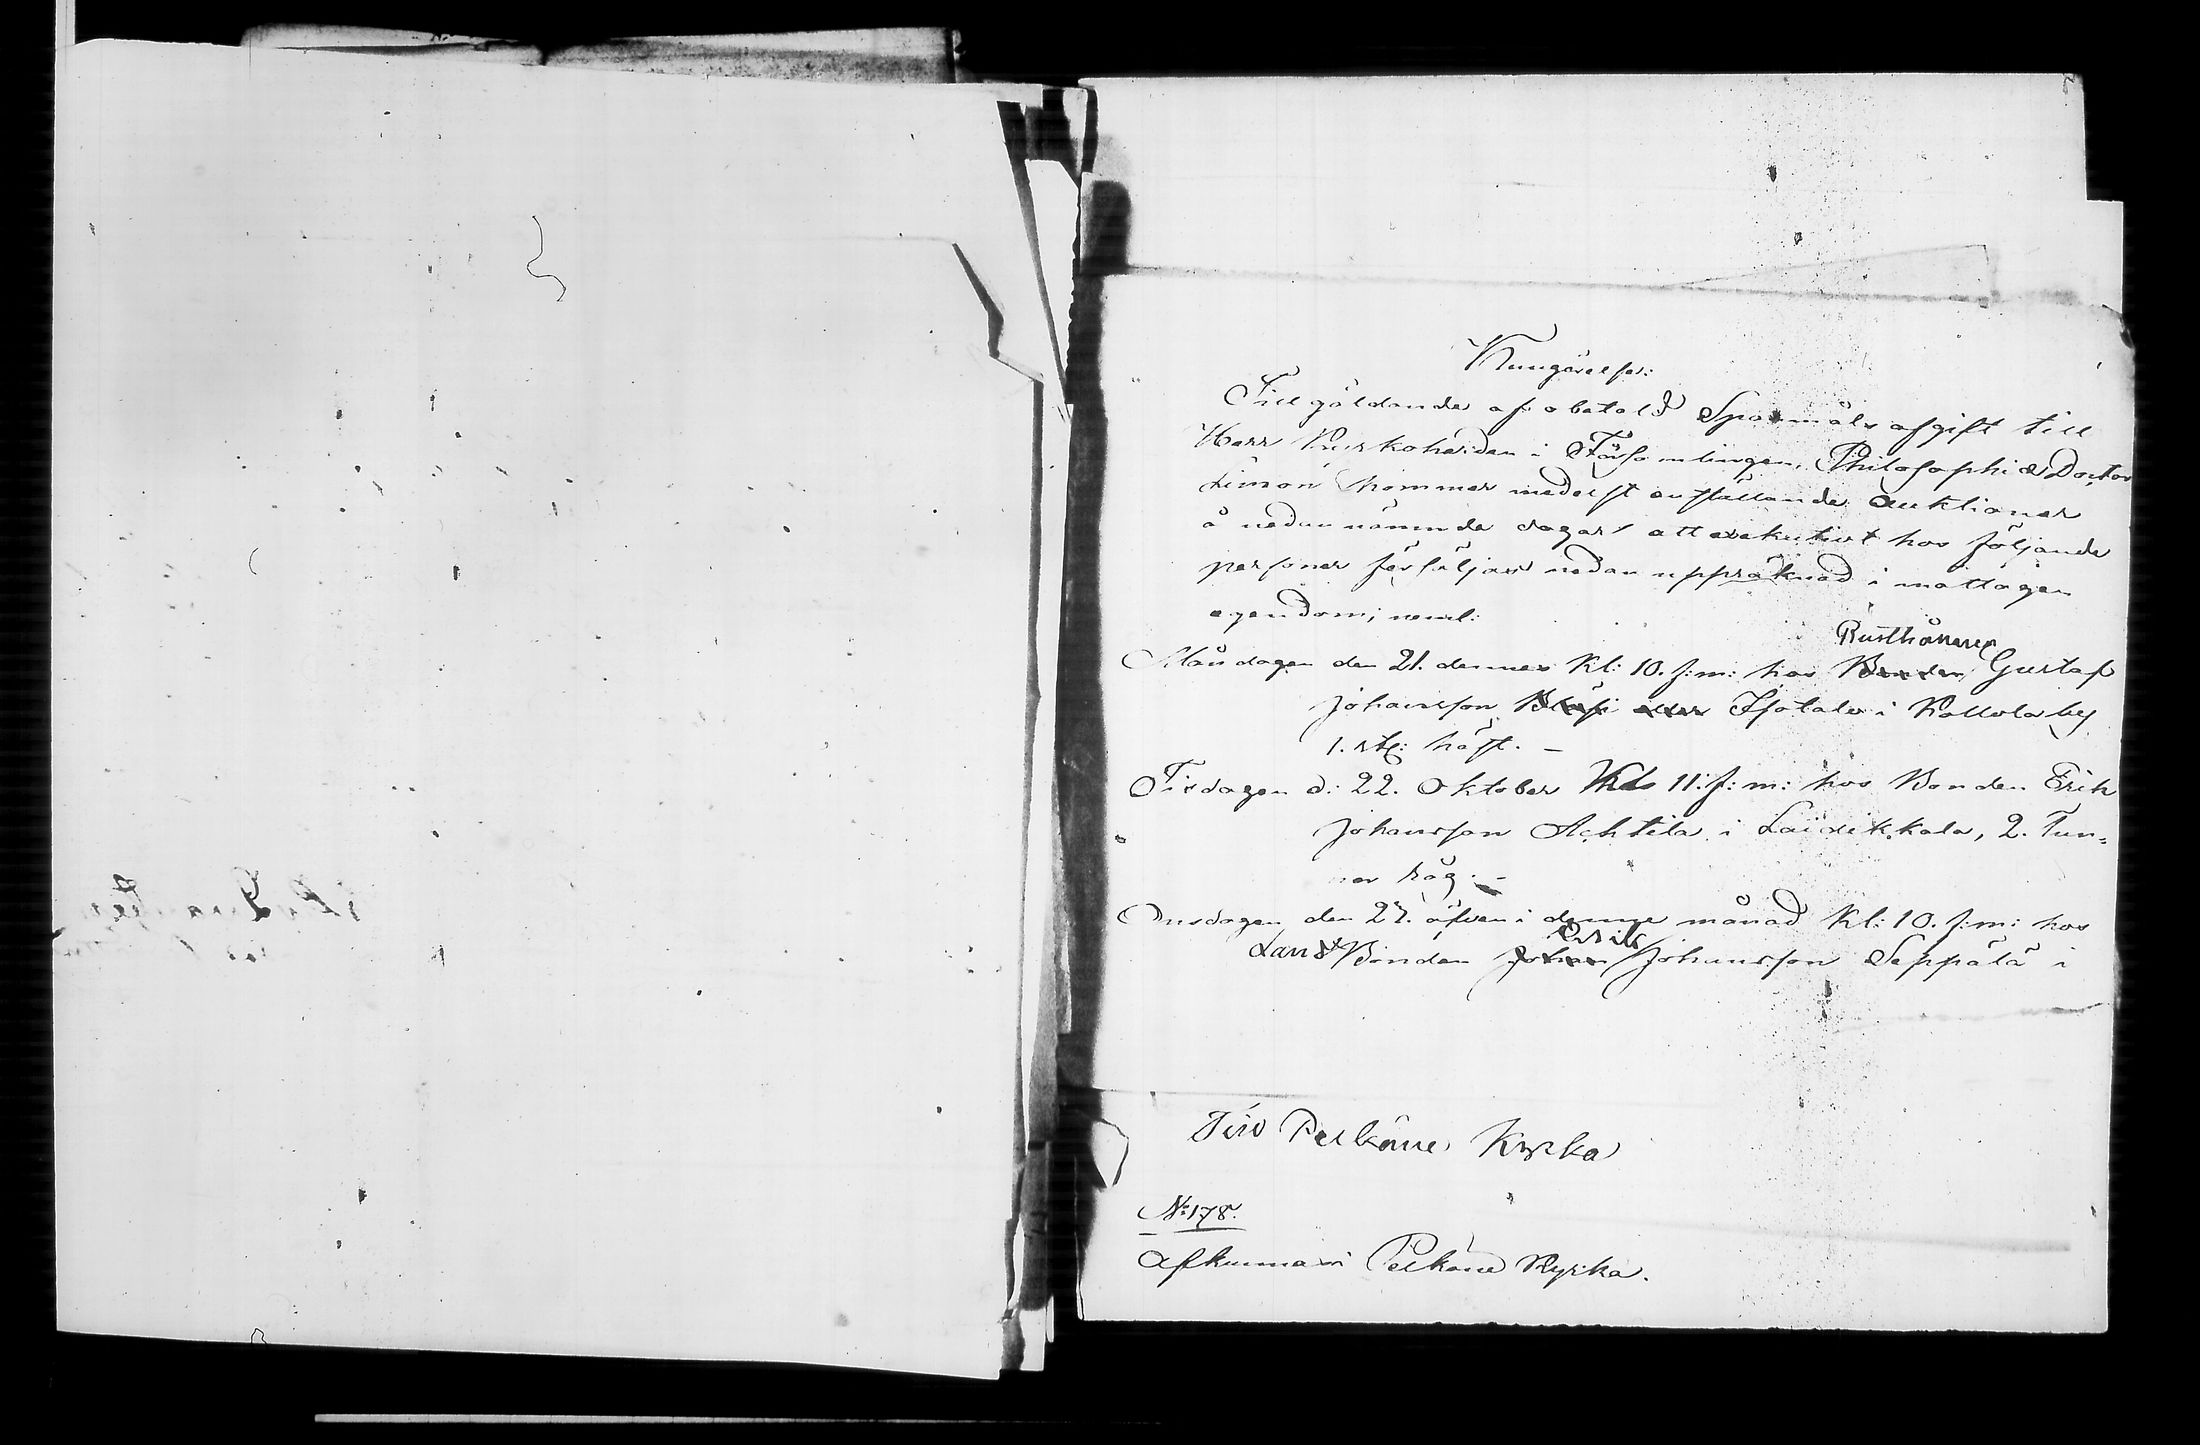 Kungörelse:
Till gäldande af obetald Spanmåls afgift till
Herr Kyrkoherden i Församlingen, Philosophiæ Doctor
Limon kommer medelst anställande auktioner
å nedannämnde dagar att exekutivt hos följande
personer försäljas nedan uppräknad i mattagen
egendom; neml:
Rusthållaren
Måndagen den 21. dennes Kl: 10. f:m: hos Bonden Gustaf
Johansson eller Isotalo i Kollola by
1. st: häst. —
Tisdagen d: 22. Oktober Kl: 11. f:m: hos Bonden Erik
Johansson Achtila i Laidikkala, 2. Tun-
nor råg. —
Onsdagen den 23. äfven i denne månad Kl: 10. f:m: hos
Erik
Landt Bonden Johan Johansson Seppälä i
Till Pelkäne Kyrka
No: 178.
Afkunnas i Pelkäne Kyrka.